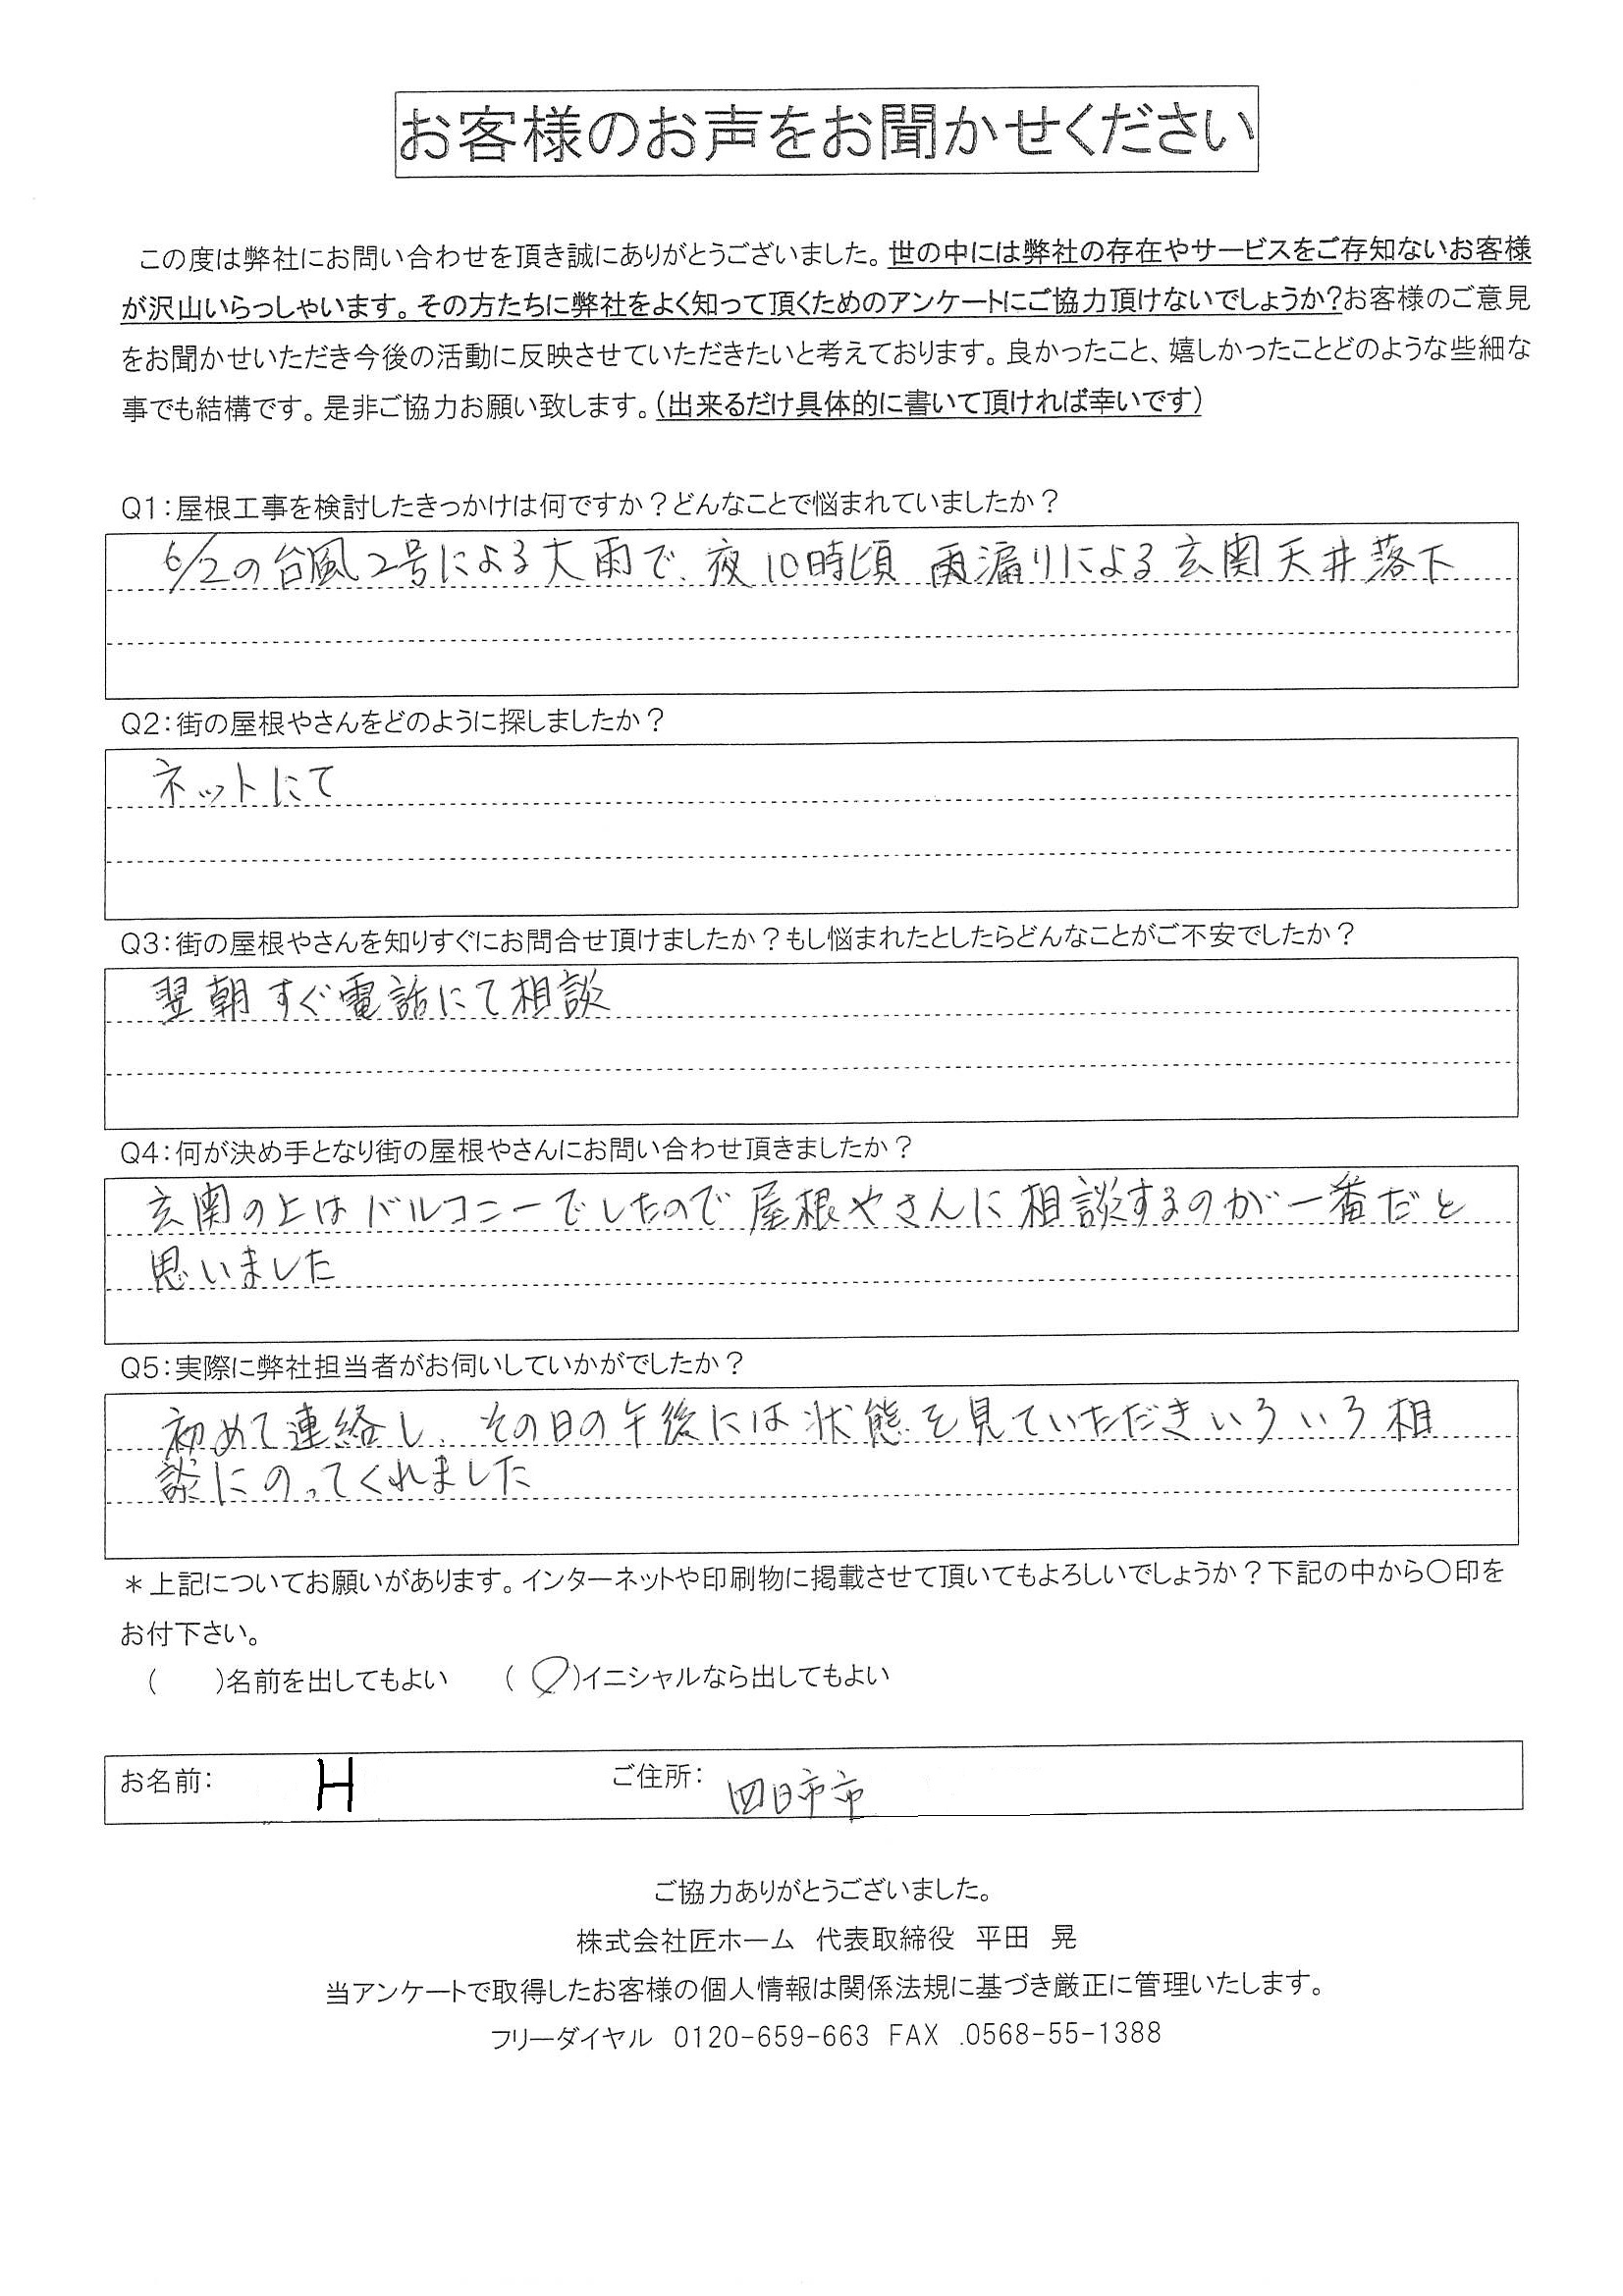 お客様のお声をお聞かせください
この度は弊社にお問い合わせを頂き誠にありがとうございました。世の中には弊社の存在やサービスをご存知ないお客様
が沢山いらっしゃいます。その方たちに弊社をよく知って頂くためのアンケートにご協力頂けないでしょうか?お客様のご意見
をお聞かせいただき今後の活動に反映させていただきたいと考えております。良かったこと、嬉しかったことどのような些細な
事でも結構です。是非ご協力お願い致します。(出来るだけ具体的に書いて頂ければ幸いです)
Q1:屋根工事を検討したきっかけは何ですか?どんなことで悩まれていましたか?
6/2の台風2号による大雨で、夜10時頃 雨漏りによる玄関天井落下
Q2:街の屋根やさんをどのように探しましたか?
ネットにて
Q3:街の屋根やさんを知りすぐにお問合せ頂けましたか?もし悩まれたとしたらどんなことがご不安でしたか?
翌朝すぐ電話にて相談
Q4:何が決め手となり街の屋根やさんにお問い合わせ頂きましたか?
玄関の上はバルコニーでしたので屋根やさんに相談するのが一番だと
思いました
Q5:実際に弊社担当者がお伺いしていかがでしたか?
初めて連絡し、その日の午後には状態を見ていただきいろいろ相
談にのってくれました
＊上記についてお願いがあります。インターネットや印刷物に掲載させて頂いてもよろしいでしょうか?下記の中から〇印を
お付下さい。
(　　)名前を出してもよい　(〇)イニシャルなら出してもよい
お名前: H ご住所: 四日市市
ご協力ありがとうございました。
株式会社匠ホーム 代表取締役 平田 晃
当アンケートで取得したお客様の個人情報は関係法規に基づき厳正に管理いたします。
フリーダイヤル 0120-659-663 FAX .0568-55-1388